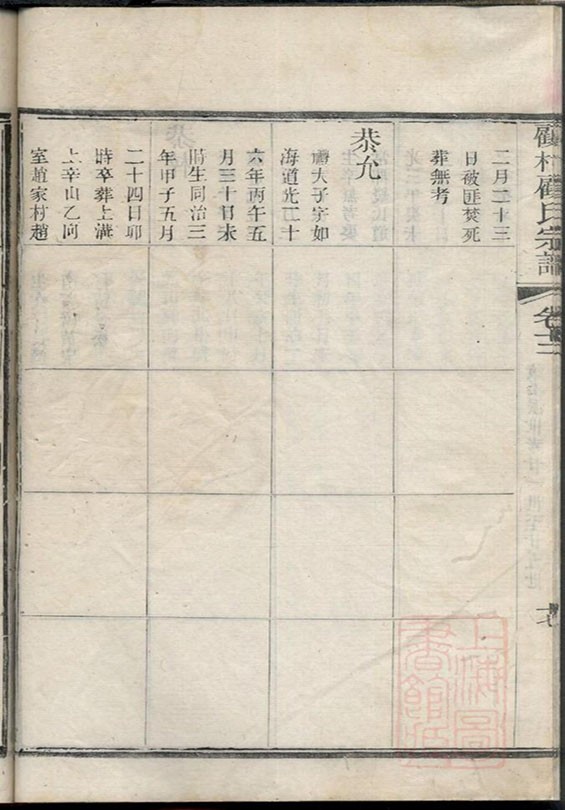 顧村顧氏宗譜
卷十二
十七
二月二十三
日被匪焚死
葬無考
恭允
大子字如
海道光二十
六年丙午五
月三十日未
時生同治三
年甲子五月
二十四日卯
時卒葬上溝
上辛山乙向
室趙家村趙
上海圖
書館藏